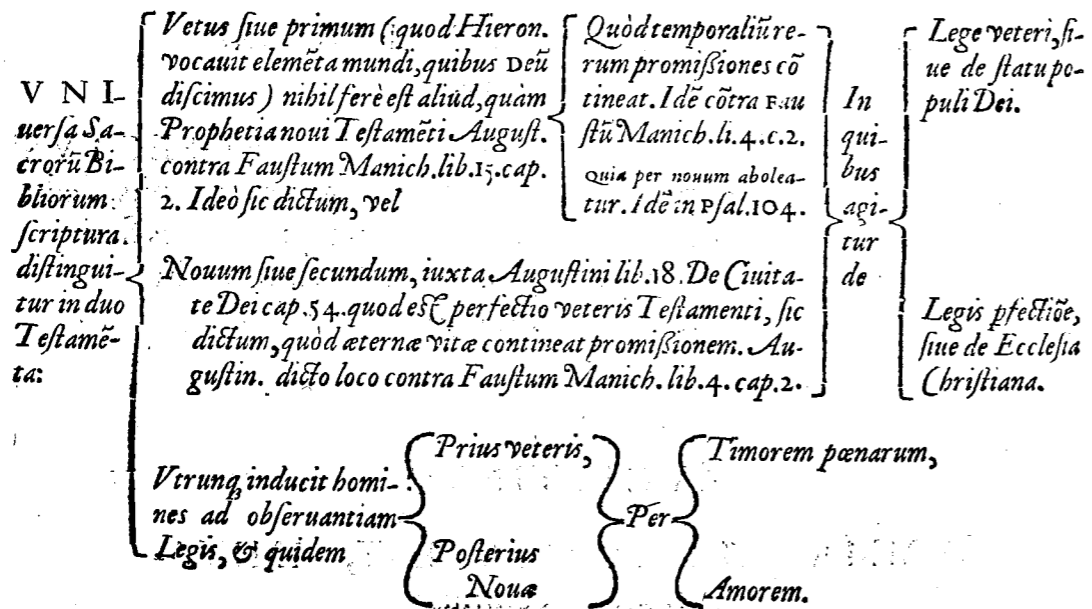 V N I-
uersa Sa-
crorũ Bi-
bliorum
scriptura
distingui-
tur in duo
Testamẽ-
ta:
Vetus siue primum (quod Hieron.
vocauit elemẽta mundi, quibus Deũ
discimus) nihil ferè est aliud, quàm
Prophetia noui Testamẽti August.
contra Faustum Manich. lib. 15. cap.
2. Ideò sic dictum, vel
Quòd temporaliũ re-
rum promißiones cõ
tineat. Idẽ cõtra Fau
stũ Manich. li. 4. c. 2.
Quia per nouum abolea-
tur. Idẽ in Psal. 104.
Nouum siue secundum, iuxta Augustini lib. 18. De Ciuita-
te Dei cap. 54. quod est perfectio veteris Testamenti, sic
dictum, quòd æternæ vitæ contineat promißionem. Au-
gustin. dicto loco contra Faustum Manich. lib. 4. cap. 2.
In
qui-
bus
agi-
tur
de
Lege veteri, si-
ue de statu po-
puli Dei.
Legis pfectiõe,
siue de Ecclesia
Christiana.
Vtrunqꝫ inducit homi-
nes ad obseruantiam
Legis, & quidem
Prius veteris,
Posterius
Nouæ
Per
Timorem pœnarum,
Amorem.